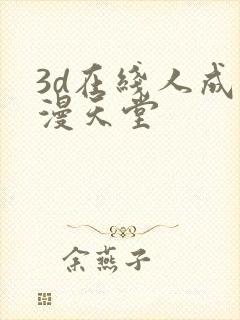 3d在綫人成
漫天堂
余燕子